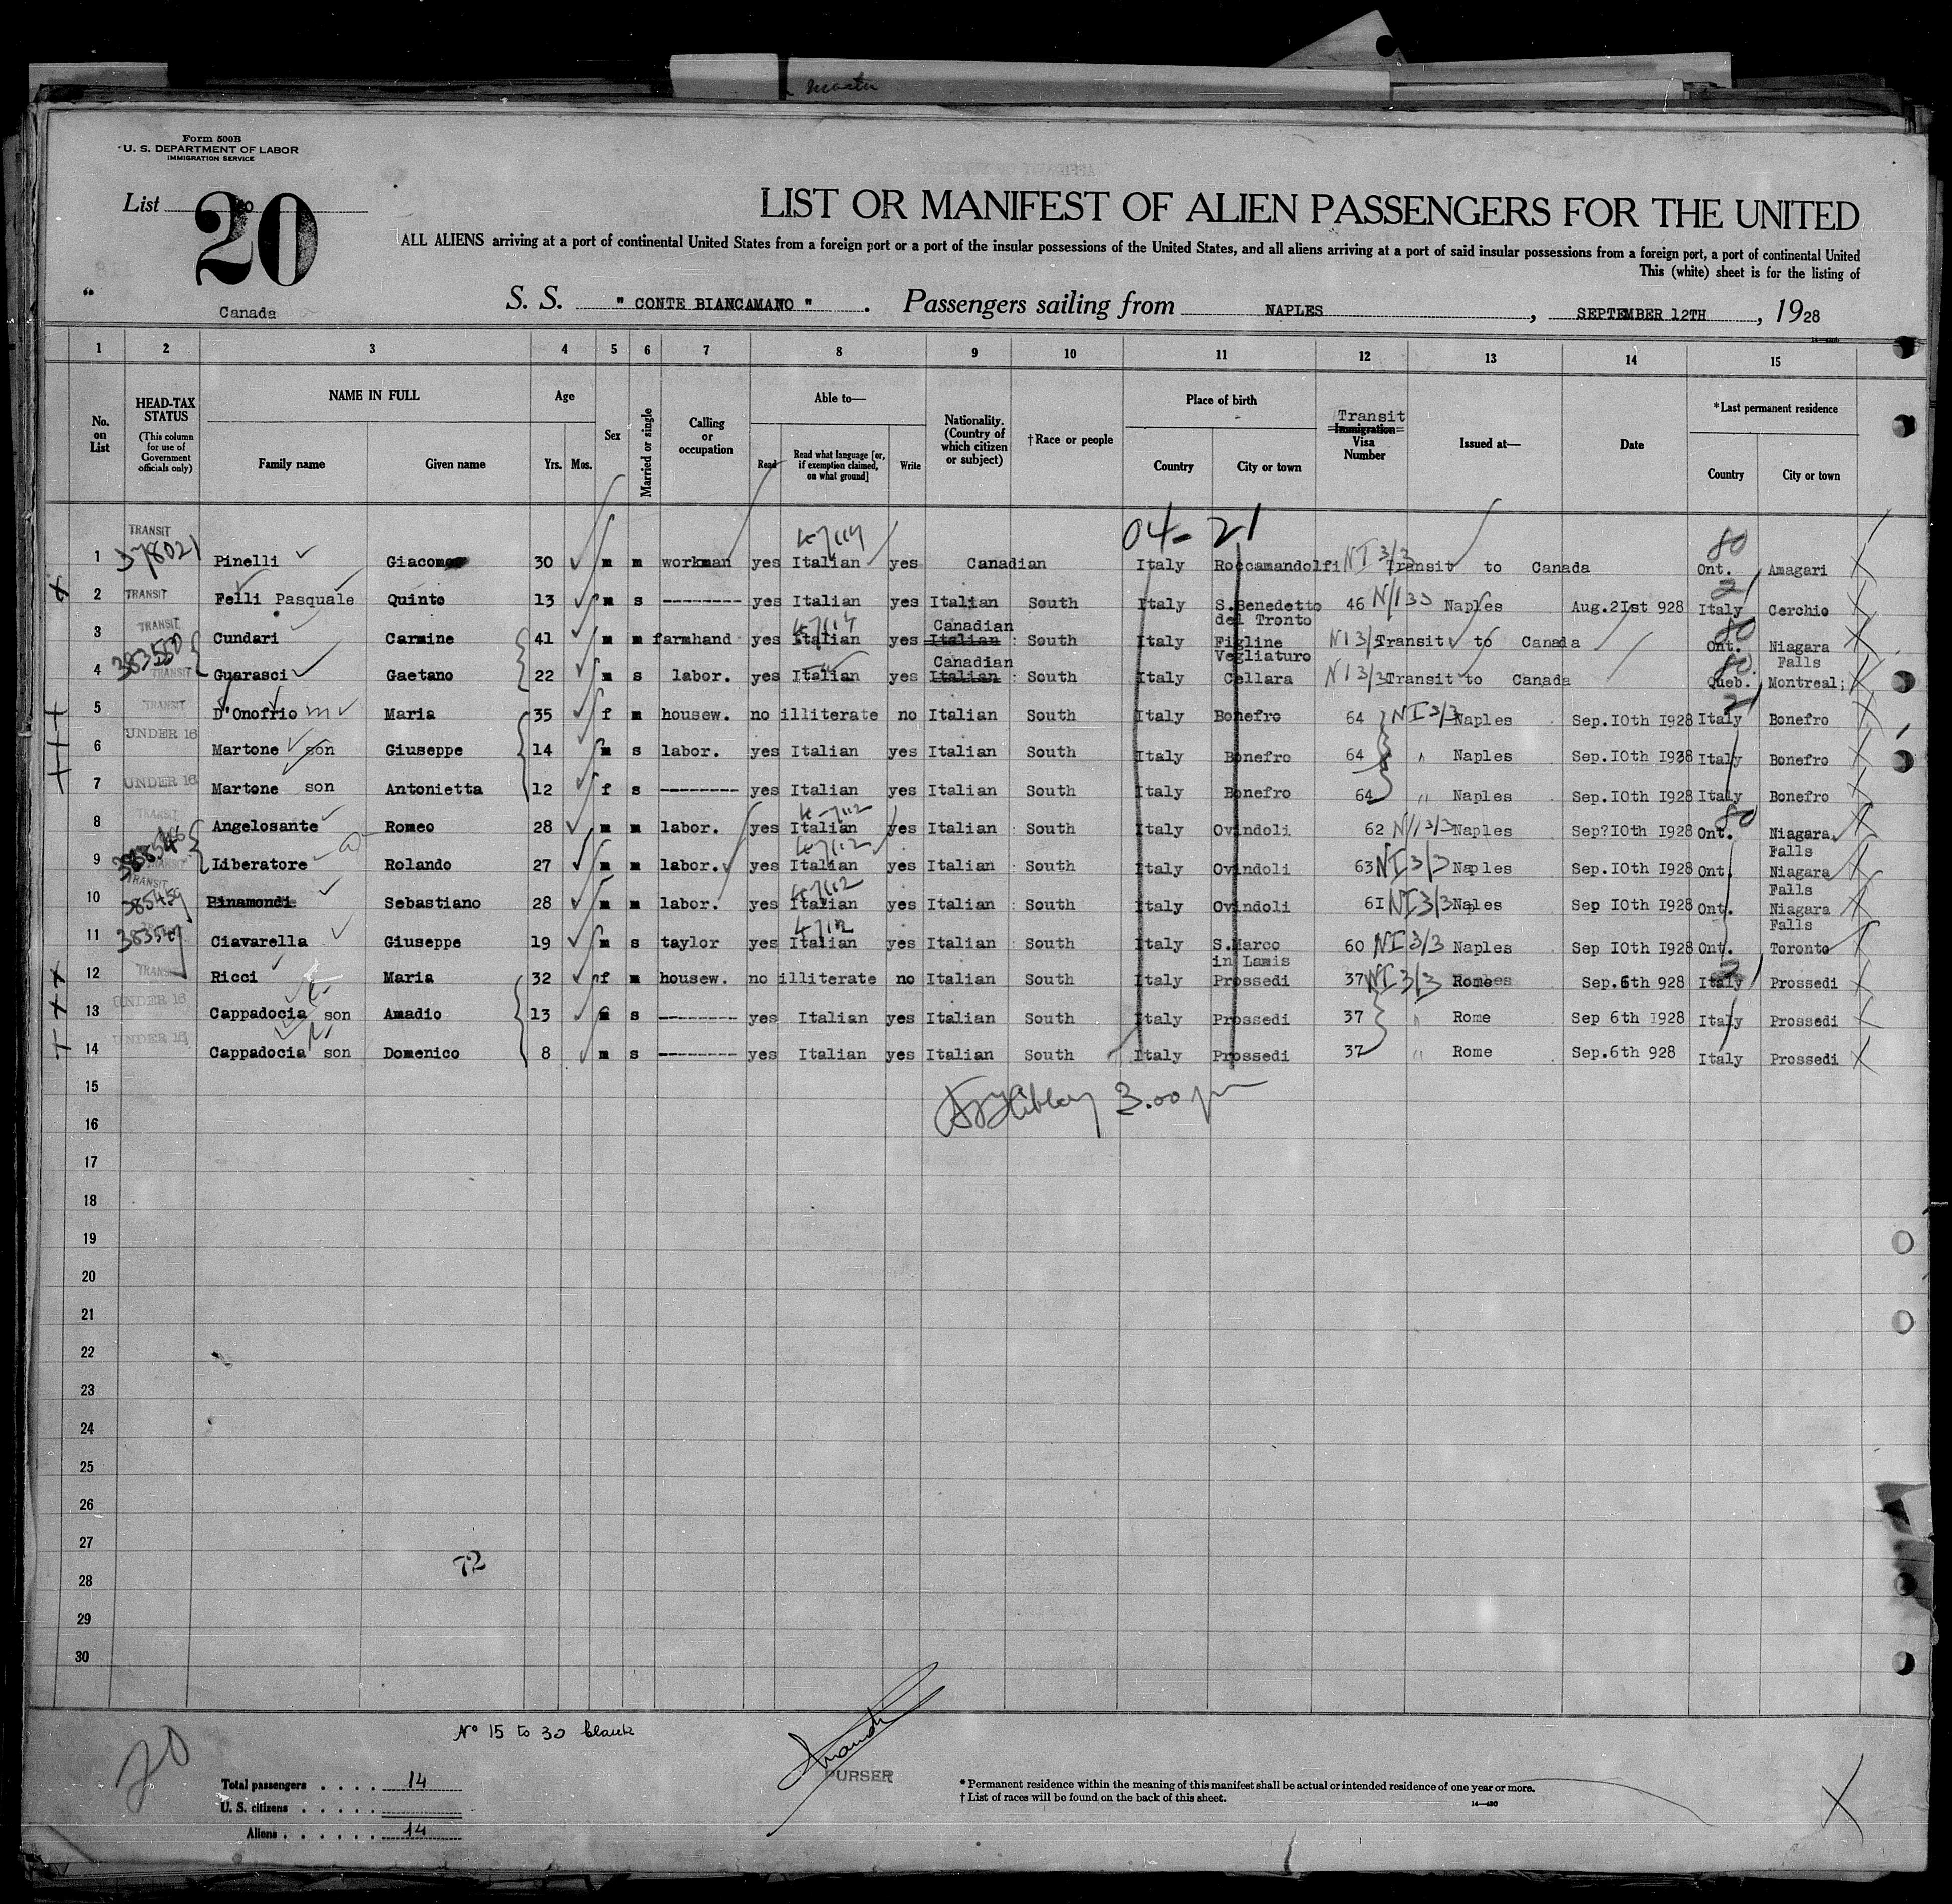 Form 500B
U. S. DEPARTMENT OF LABOR
IMMIGRATION SERVICE
List 20
LIST OR MANIFEST OF ALIEN PASSENGERS FOR THE UNITED
ALL ALIENS arriving at a port of continental United States from a foreign port or a port of the insular possessions of the United States, and all aliens arriving at a port of said insular possessions from a foreign port, a port of continental United
This (white) sheet is for the listing of
Canada
S. S. " CONTE BIANCAMANO " . Passengers sailing from NAPLES , SEPTEMBER 12TH , 1928
1 2 3 4 5 6 7 8 9 10 11 12 13 14 15
No. on List
HEAD-TAX STATUS
(This column for use of Government officials only)
NAME IN FULL
Family name Given name
Age
Yrs. Mos.
Sex
Married or single
Calling or occupation
Able to—
Read
Read what language [or, if exemption claimed, on what ground]
Write
Nationality. (Country of which citizen or subject)
†Race or people
Place of birth
Country City or town
Transit
Immigration Visa Number
Issued at—
Date
*Last permanent residence
Country City or town
04-21
TRANSIT
1 378021 Pinelli Giacomo 30 m m workman yes Italian yes Canadian Italy Roccamandolfi NI 3/3 Transit to Canada Ont. Amagari
2 TRANSIT Felli Pasquale Quinto 13 m s -------- yes Italian yes Italian South Italy S.Benedetto del Tronto 46 Naples Aug.2Ist 928 Italy Cerchio
TRANSIT
3 Cundari Carmine 41 m m farmhand yes Italian yes Canadian Italian South Italy Figline Vegliaturo NI 3/3 Transit to Canada Ont. Niagara Falls
4 TRANSIT Guarasci Gaetano 22 m s labor. yes Italian yes Canadian Italian South Italy Cellara NI 3/3 Transit to Canada Queb. Montreal;
5 TRANSIT D'Onofrio Maria 35 f m housew. no illiterate no Italian South Italy Bonefro 64 NI 3/3 Naples Sep.IOth I928 Italy Bonefro
6 UNDER 16 Martone son Giuseppe 14 m s labor. yes Italian yes Italian South Italy Bonefro 64 " Naples Sep.IOth I928 Italy Bonefro
7 UNDER 16 Martone son Antonietta 12 f s -------- yes Italian yes Italian South Italy Bonefro 64 " Naples Sep.IOth I928 Italy Bonefro
8 TRANSIT Angelosante Romeo 28 m m labor. yes Italian yes Italian South Italy Ovindoli 62 NI 3/3 Naples Sep?IOth I928 Ont. Niagara Falls
9 TRANSIT Liberatore Rolando 27 m m labor. yes Italian yes Italian South Italy Ovindoli 63 NI 3/3 Naples Sep.IOth I928 Ont. Niagara Falls
TRANSIT
10 385459 Pinamondi Sebastiano 28 m m labor. yes Italian yes Italian South Italy Ovindoli 6I NI 3/3 Naples Sep IOth I928 Ont. Niagara Falls
11 Ciavarella Giuseppe 19 m s taylor yes Italian yes Italian South Italy S.Marco in Lamis 60 NI 3/3 Naples Sep IOth I928 Ont. Toronto
12 TRANSIT Ricci Maria 32 f m housew. no illiterate no Italian South Italy Prossedi 37 NI 3/3 Rome Sep.6th 928 Italy Prossedi
13 UNDER 16 Cappadocia son Amadio 13 m s -------- yes Italian yes Italian South Italy Prossedi 37 " Rome Sep 6th I928 Italy Prossedi
14 UNDER 16 Cappadocia son Domenico 8 m s -------- yes Italian yes Italian South Italy Prossedi 37 " Rome Sep.6th 928 Italy Prossedi
15
3.00 pm
16
17
18
19
20
21
22
23
24
25
26
27
72
28
29
30
Nº 15 to 30 blank
20
PURSER
Total passengers . . . . 14
U. S. citizens . . . . .
Aliens . . . . . . 14
* Permanent residence within the meaning of this manifest shall be actual or intended residence of one year or more.
† List of races will be found on the back of this sheet.
14—420